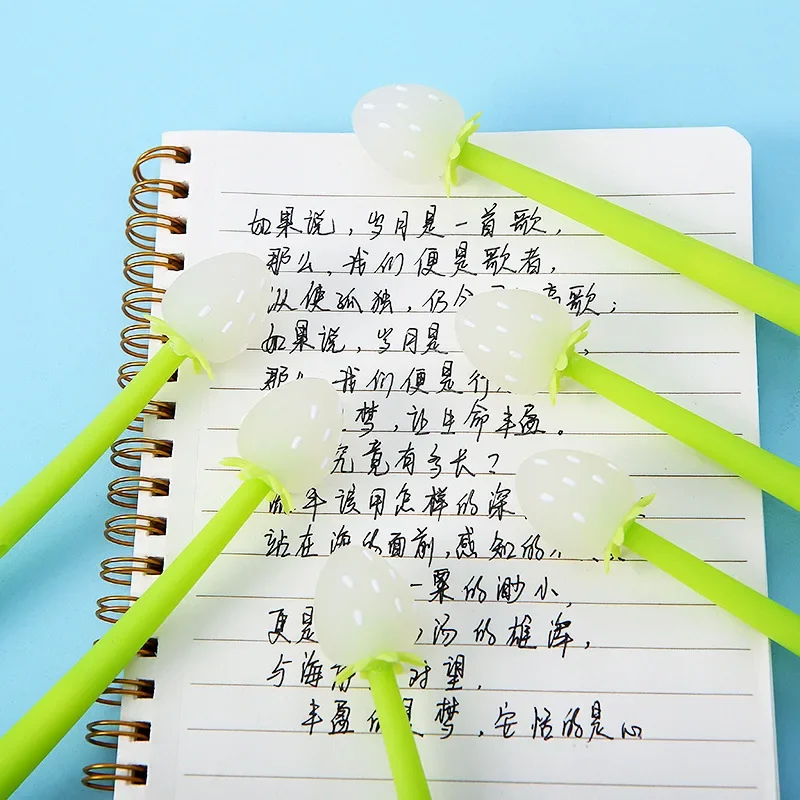 如果说，岁月是一首歌，
那么，我们便是歌者，
纵使孤独，仍会 高歌；
如果说，岁月是
那么 我们便是行
梦，让生命丰盈。
究竟有多长？
年该用怎样的深
站在海的面前，感知的
一粟的渺小，
更是 汤的雄浑，
与海 对望，
丰盈的是梦，安恬的是心